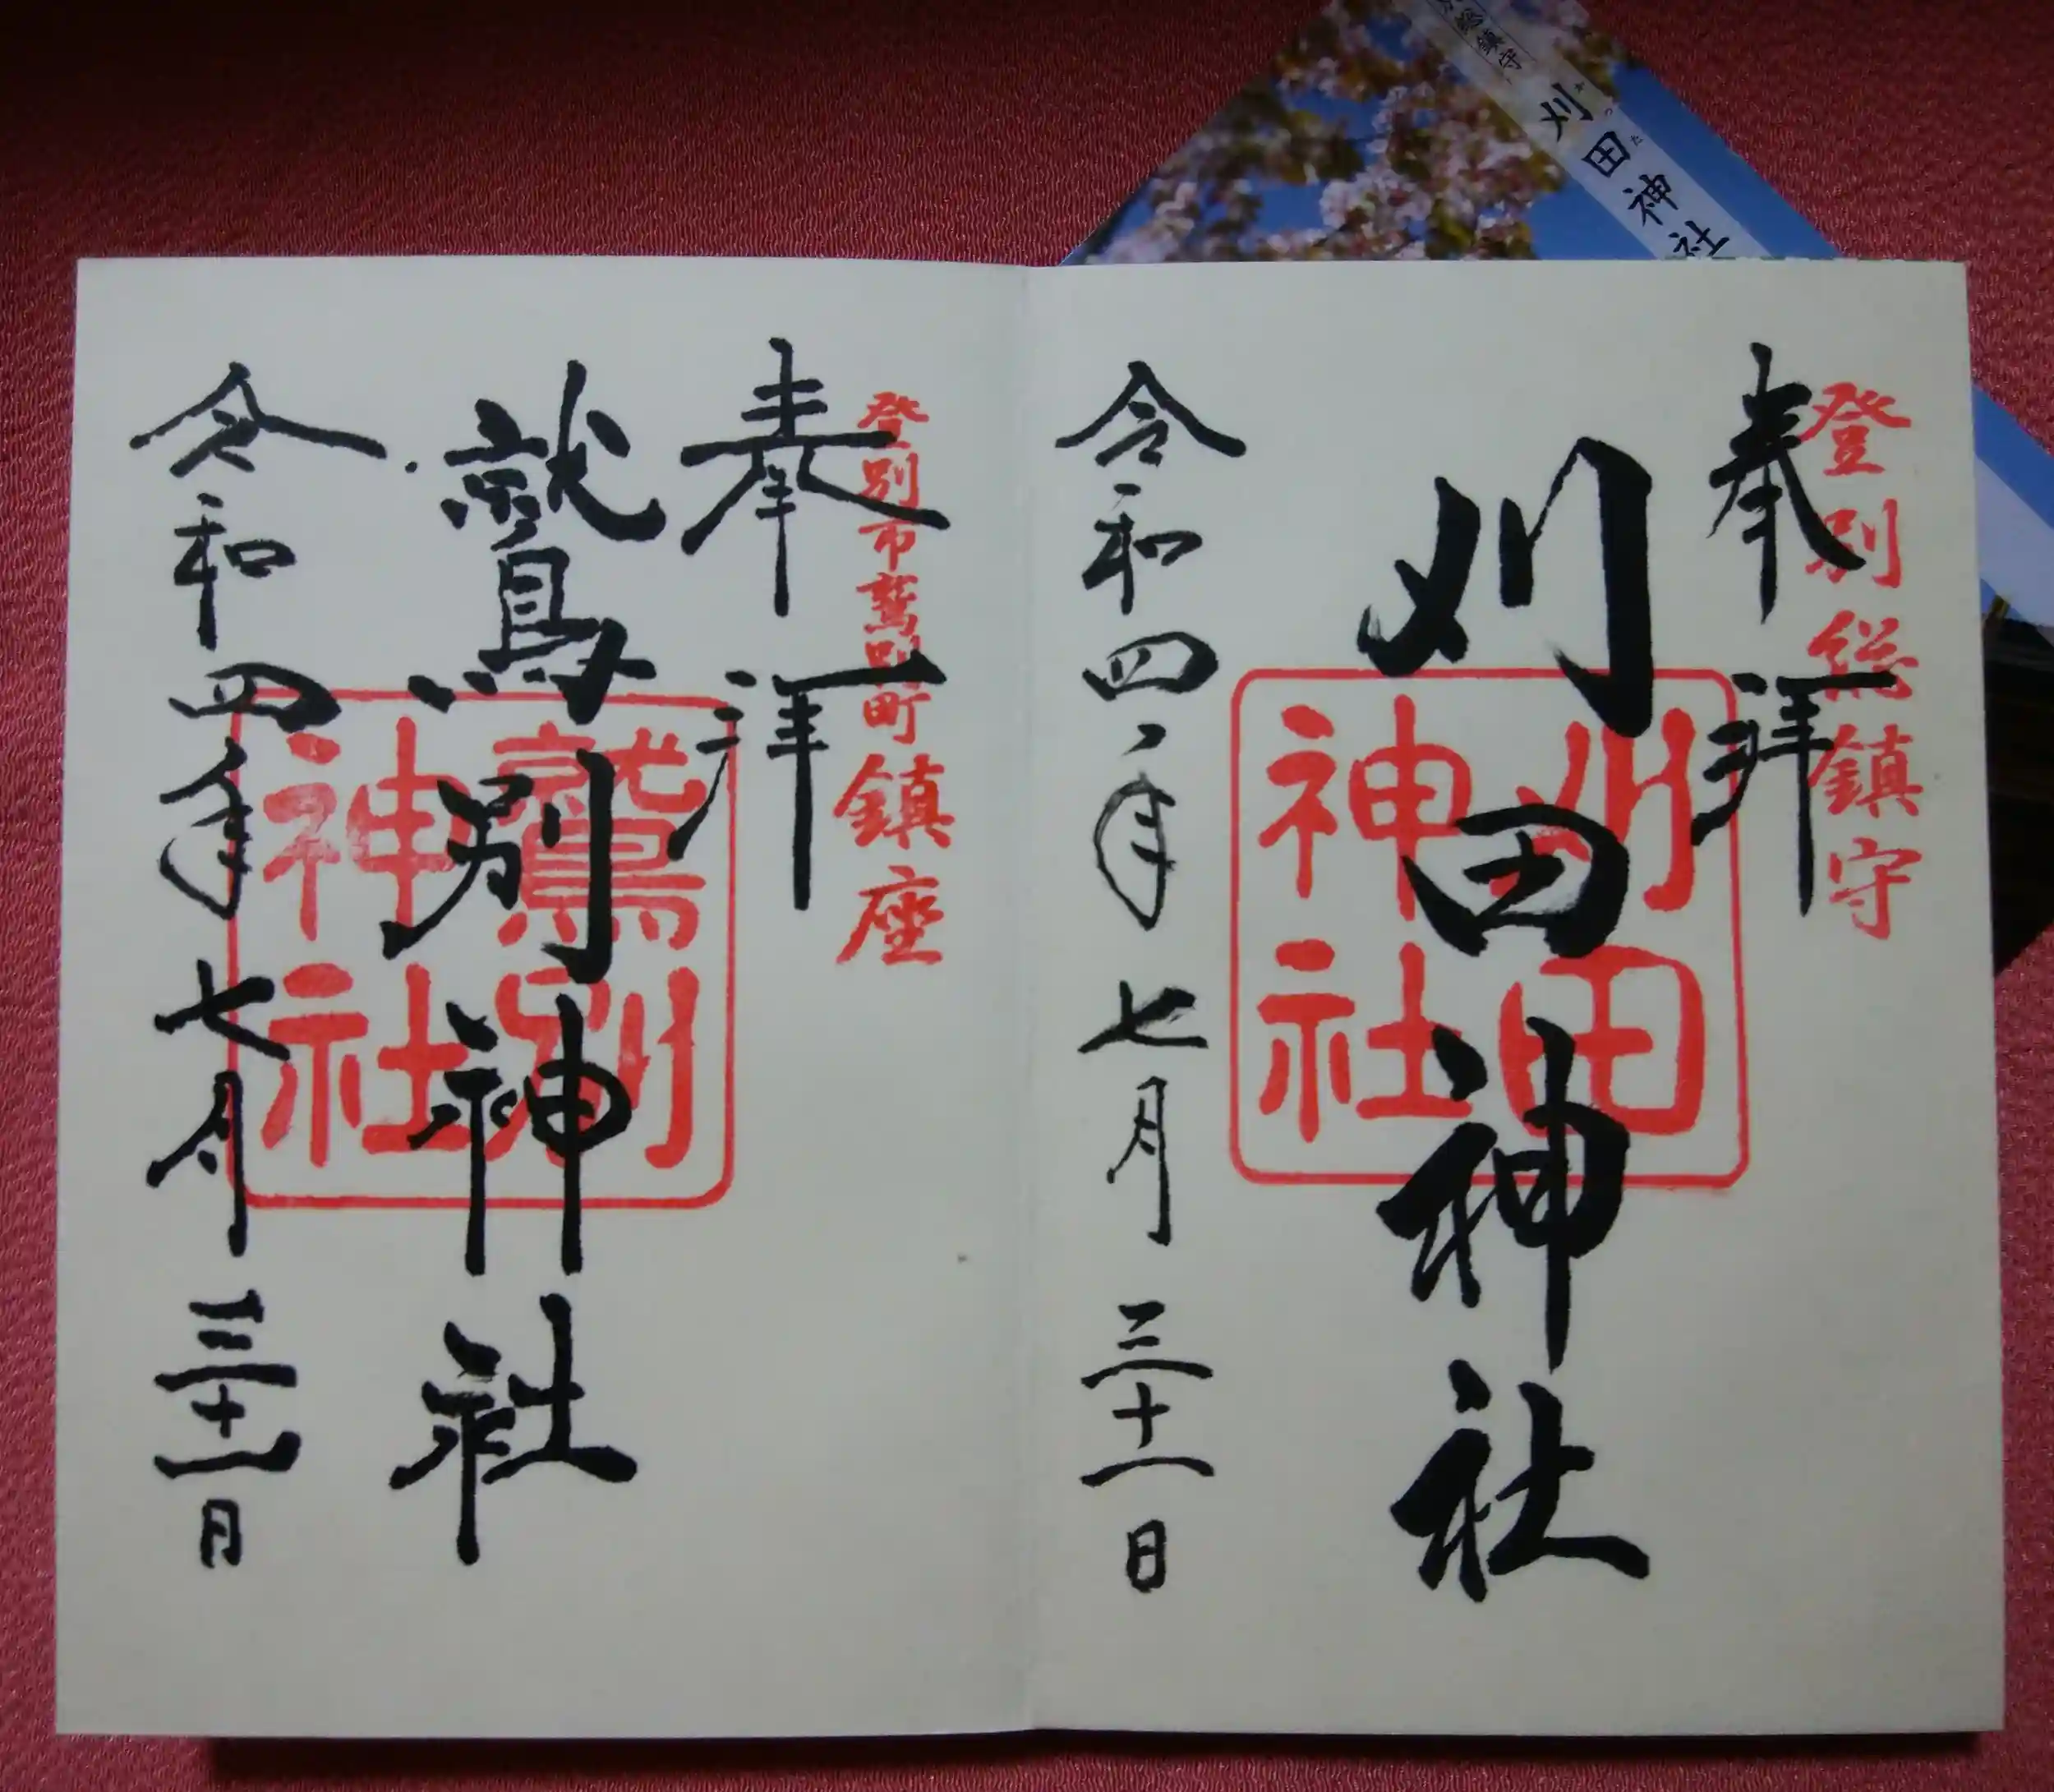 刈田神社
かつた
登別総鎮守
奉拝
刈田神社
刈田
神社
令和四年七月三十一日
登別市鷲別町鎮座
奉拝
鷲別神社
鷲別
神社
令和四年七月三十一日